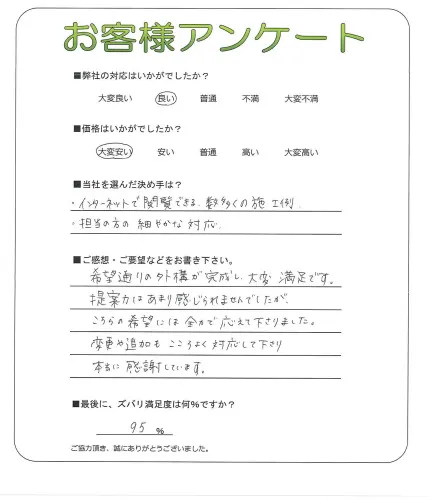 お客様アンケート
■弊社の対応はいかがでしたか？
大変良い 良い 普通 不満 大変不満
■価格はいかがでしたか？
大変安い 安い 普通 高い 大変高い
■当社を選んだ決め手は？
・インターネットで閲覧できる、数多くの施工例。
・担当の方の細やかな対応。
■ご感想・ご要望などをお書き下さい。
希望通りの外構が完成し、大変満足です。
提案力はあまり感じられませんでしたが
こちらの希望には全力で応えて下さりました。
変更や追加もこころよく対応して下さり
本当に感謝しています。
■最後に、ズバリ満足度は何％ですか？
95 %
ご協力頂き、誠にありがとうございました。